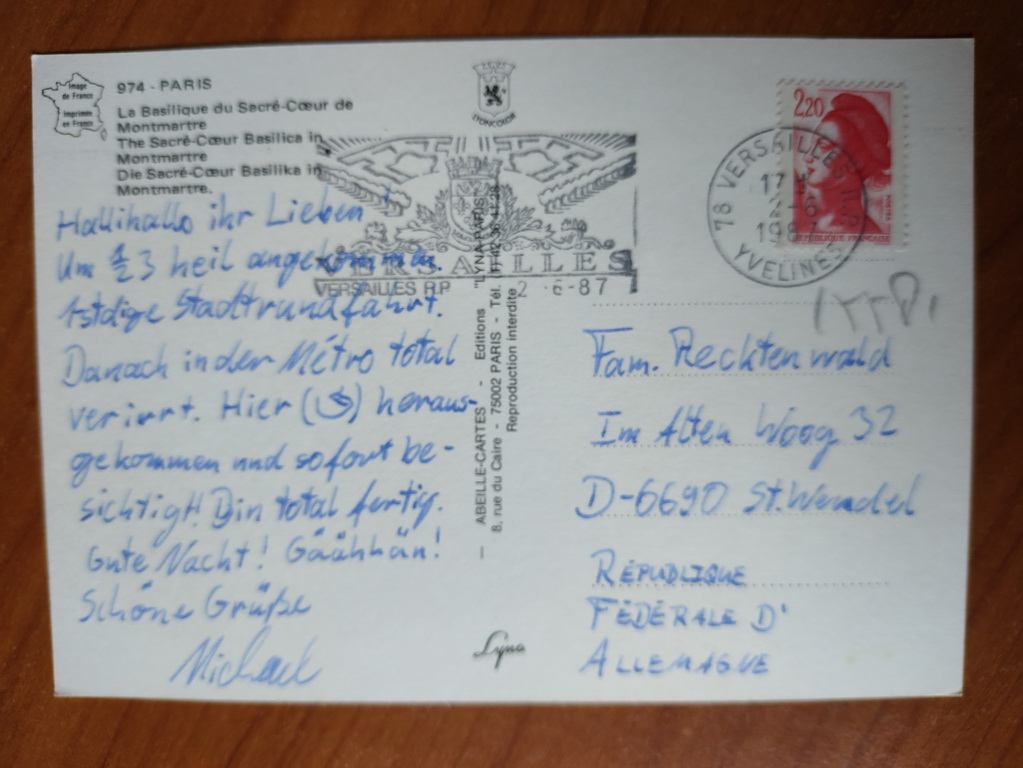 Image
de France
Imprimée
en France
974 - PARIS
La Basilique du Sacré-Cœur de
Montmartre
The Sacré-Cœur Basilica in
Montmartre
Die Sacré-Cœur Basilika in
Montmartre.
Hallihallo ihr Lieben!
Um 1/2 3 heil angekommen.
1stdige Stadtrundfahrt.
Danach in der Métro total
verirrt. Hier (S) heraus-
gekommen und sofort be-
sichtigt! Bin total fertig.
Gute Nacht! Gäähhän!
Schöne Grüße
Michael
VERSAILLES
VERSAILLES R.P. 2 -6-87
— ABEILLE-CARTES - Editions "LYNA-PARIS"
8, rue du Caire - 75002 PARIS - Tél.
Reproduction interdite
Lyna
2,20
POSTES
REPUBLIQUE FRANÇAISE
78 VERSAILLES R.P.
17 H
1987
YVELINES
Fam. Recktenwald
Im Alten Woog 32
D-6690 St. Wendel
RÉPUBLIQUE
FÉDÉRALE D'
ALLEMAGNE